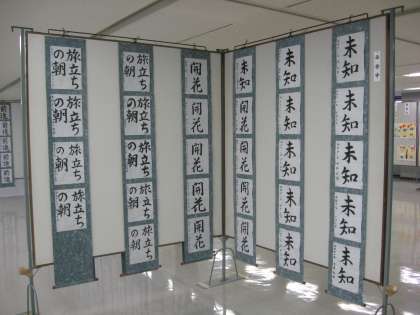 未知
未知
未知
未知
未知
未知
未知
未知
未知
未知
未知
開花
開花
開花
開花
開花
開花
開花
開花
開花
旅立ち
の朝
旅立ち
の朝
旅立ち
の朝
旅立ち
の朝
旅立ち
の朝
旅立ち
の朝
旅立ち
の朝
旅立ち
の朝
旅立ち
の朝